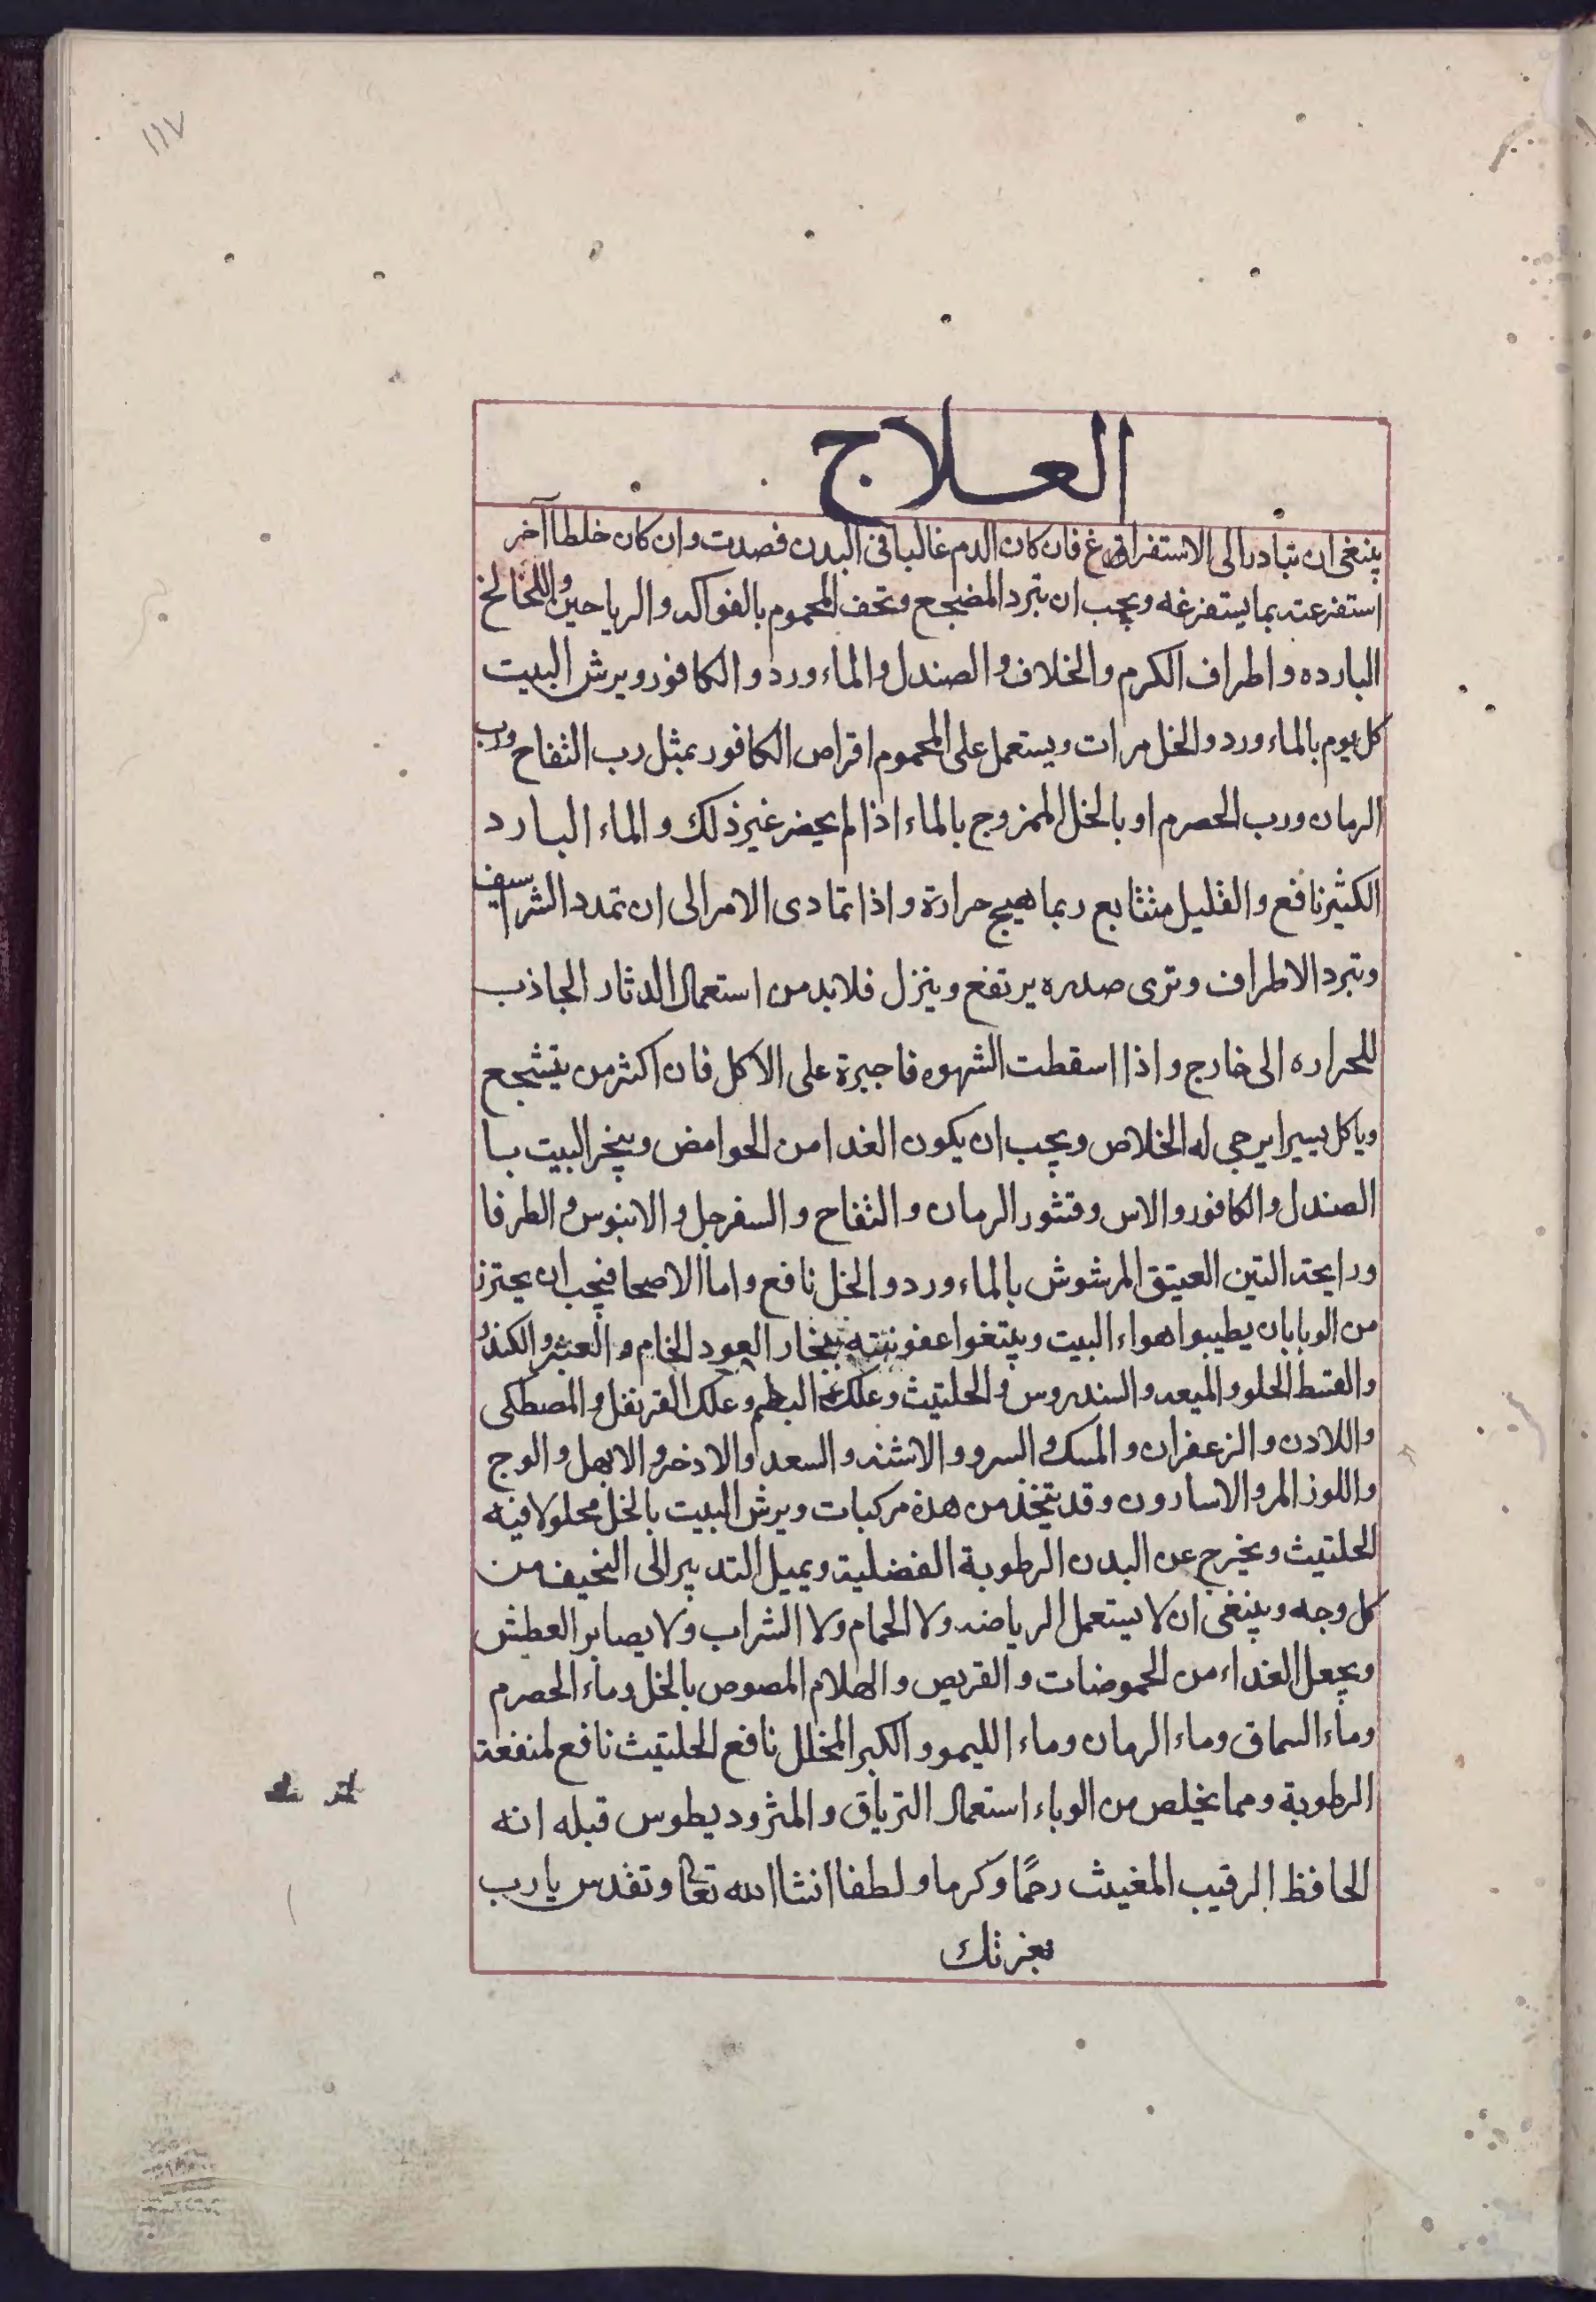 ١١٧
العلاج
ينبغى ان تبادر الى الاستفراغ فان كان الدم غالبا فى البدن فصدت وان كان خلطا آخر
استفرغته بما يستفرغه ويجب ان تبرد المضجع وتحف المحموم بالفواكه والرياحين واللخالخ
البارده واطراف الكرم والخلاف والصندل والماء ورد والكافور ويرش البيت
كل يوم بالماء ورد والخل مرات ويستعمل على المحموم اقراص الكافور بمثل رب التفاح ورب
الرمان ورب الحصرم او بالخل الممزوج بالماء اذا لم يحضر غير ذلك والماء البارد
الكثير نافع والقليل متتابع ربما هيج حرارة واذا تمادى الامر الى ان تمدد الشراسيف
وتبرد الاطراف وترى صدره يرتفع وينزل فلابد من استعمال الدثار الجاذب
للحراره الى خارج واذا اسقطت الشهوه فاجبرة على الاكل فان اكثر من يتشجع
وياكل يسيرا يرجى له الخلاص ويجب ان يكون الغدا من الحوامض ويبخر البيت با
الصندل والكافور والاس وقشور الرمان والتفاح والسفرجل والابنوس والطرفا
ورايحة التين العتيق المرشوش بالماء ورد والخل نافع واما الاصحا فيجب ان يحترز
من الوبا بان يطيبوا هواء البيت وينتغوا عفونته ببخار العود الخام والعنبر والكندر
والقسط الحلو والميعه والسندروس والحلتيث وعلك البطم وعلك القرنفل والمصطكى
واللادن والزعفران والمسك والسرو والاشنه والسعد والادخر والابهل والوج
واللوز المر والاسارون وقد يتخذ من هذه مركبات ويرش البيت بالخل محلولا فيه
الحلتيث ويخرج عن البدن الرطوبة الفضلية ويميل التدبير الى النحيف من
كل وجه وينبغى ان لا يستعمل الرياضه ولا الحمام ولا الشراب ولا يصابر العطش
ويجعل الغداء من الحموضات والقريص والهلام المصوص بالخل وماء الحصرم
وماء السماق وماء الرمان وماء الليمو والكبر المخلل نافع الحلتيث نافع لمنفعة
الرطوبة ومما يخلص من الوباء استعمال الترياق والمثروديطوس قبله انه
الحافظ الرقيب المغيث رحمًا وكرما ولطفا انشا الله تعالى وتقدس يا رب
بعزتك